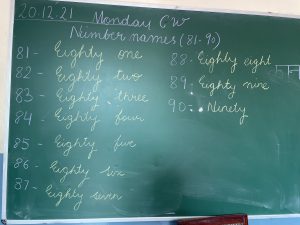 20.12.21 Monday C.W
Number names (81-90)
81- Eighty one
82 - Eighty two
83 - Eighty three
84 - Eighty four
85 - Eighty five
86 - Eighty six
87- Eighty seven
88- Eighty eight
89- Eighty nine
90- Ninety